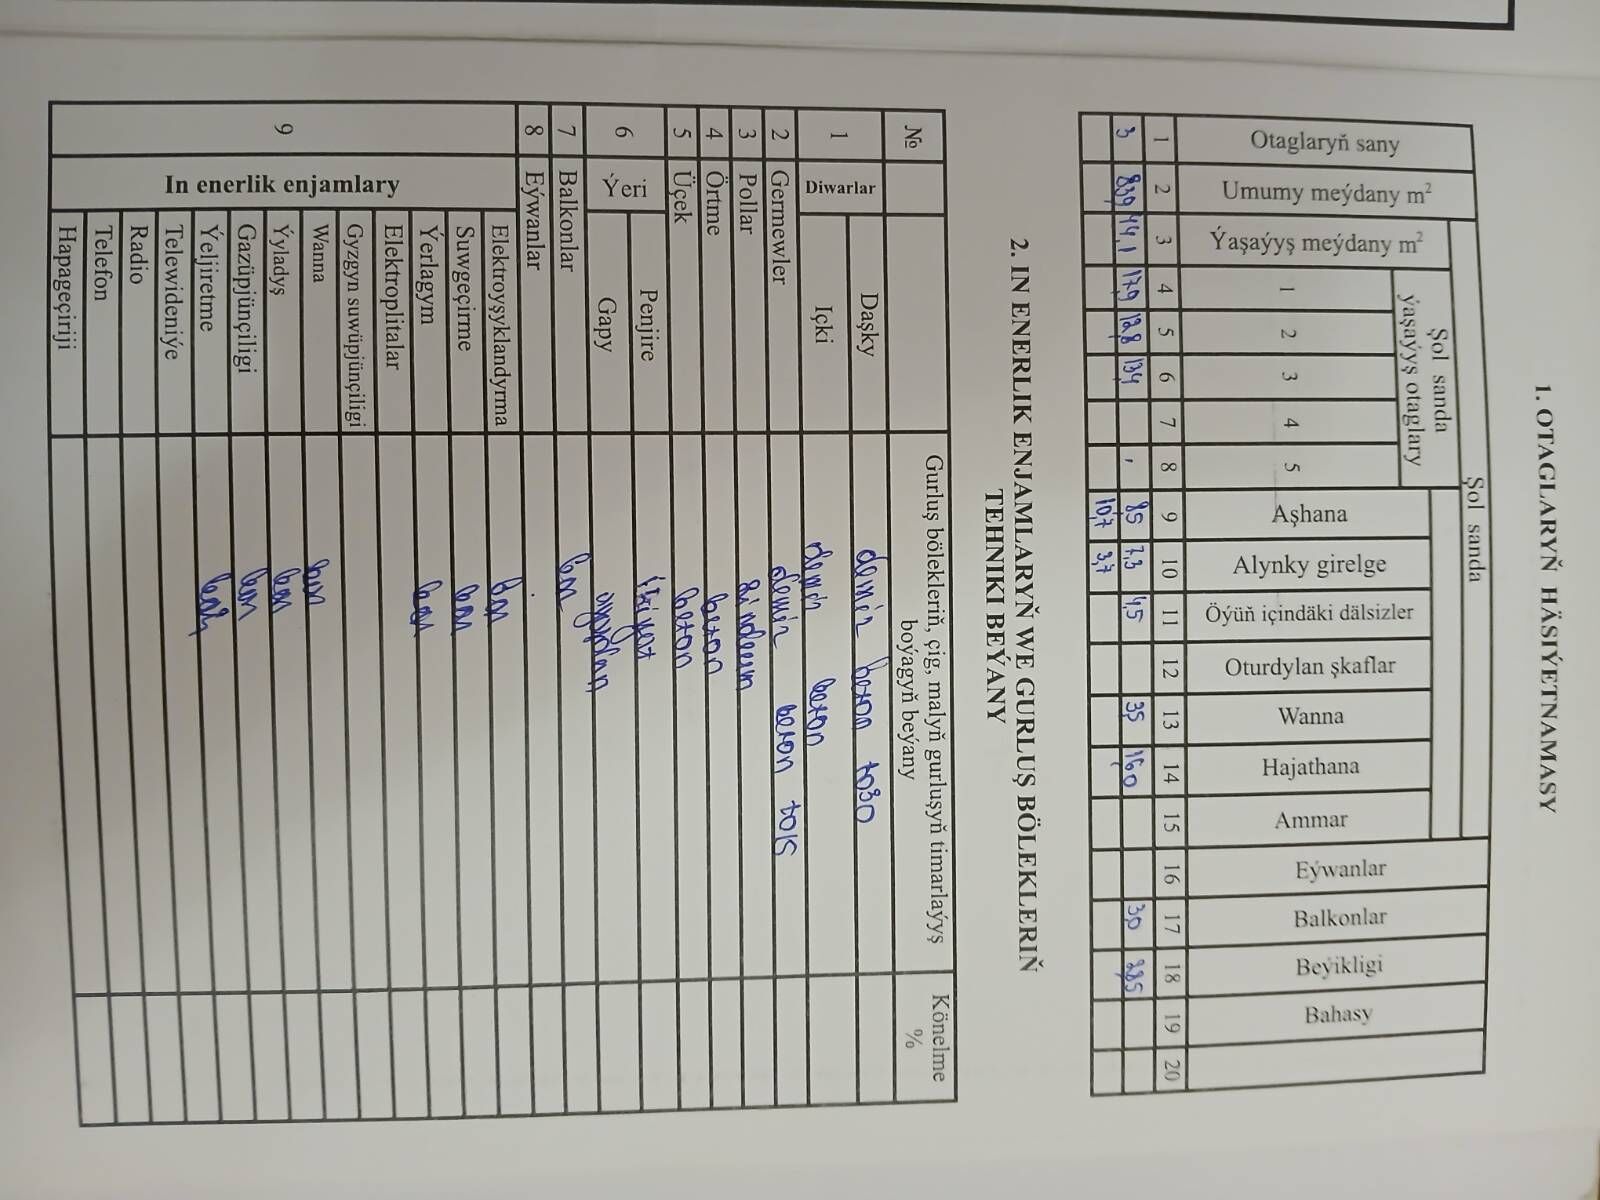 1. OTAGLARYŇ HÄSIÝETNAMASY
Otaglaryň sany
Umumy meýdany m²
Ýaşaýyş meýdany m²
Şol sanda
Şol sanda
ýaşaýyş otaglary
1 2 3 4 5
Aşhana
Alynky girelge
Öýüň içindäki dälsizler
Oturdylan şkaflar
Wanna
Hajathana
Ammar
Eýwanlar
Balkonlar
Beýikligi
Bahasy
1 2 3 4 5 6 7 8 9 10 11 12 13 14 15 16 17 18 19 20
3 83,9 44,1 17,9 12,8 13,4 8,5 7,3 4,5 3,5 1,60 3,0 2,85
10,7 3,7
2. IN ENERLIK ENJAMLARYŇ WE GURLUŞ BÖLEKLERIŇ
TEHNIKI BEÝANY
№ Gurluş bölekleriň, çig, malyň gurluşyň timarlaýyş boýagyň beýany Könelme %
1 Diwarlar Daşky demir beton to30
Içki demir beton
2 Germewler demir beton to15
3 Pollar lindeum
4 Örtme beton
5 Üçek beton
6 Ýeri Penjire
Gapy
7 Balkonlar bar
8 Eýwanlar
9 In enerlik enjamlary Elektroyşyklandyrma bar
Suwgeçirme bar
Ýerlagym bar
Elektroplitalar
Gyzgyn suwüpjünçiligi
Wanna bar
Ýyladyş bar
Gazüpjünçiligi bar
Ýeljiretme bar
Telewideniýe
Radio
Telefon
Hapageçiriji